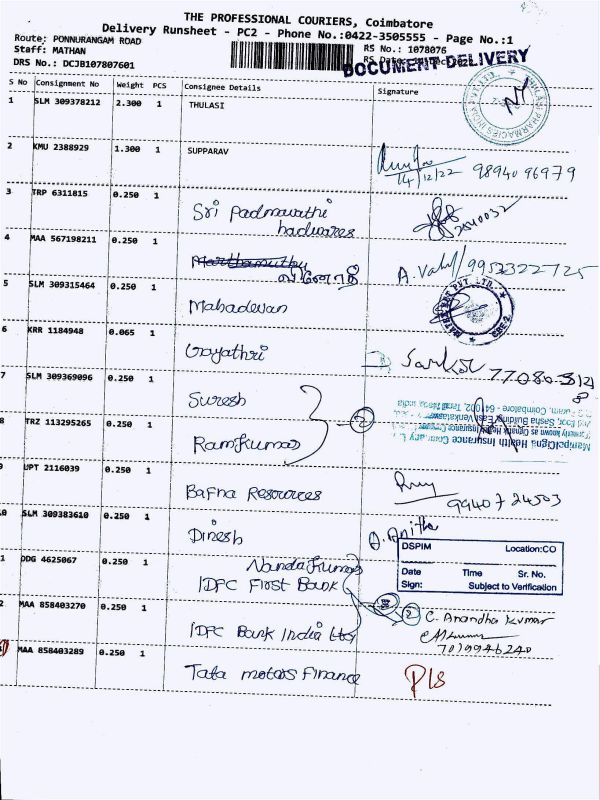 THE PROFESSIONAL COURIERS, Coimbatore
Delivery Runsheet - PC2 - Phone No.:0422-3505555 - Page No.:1
Route: PONNURANGAM ROAD
Staff: MATHAN
DRS No.: DCJB107807601
RS No.: 1078076
DOCUMENT DELIVERY
S No Consignment No Weight PCS Consignee Details Signature
1 SLM 309378212 2.300 1 THULASI
2 KMU 2388929 1.300 1 SUPPARAV
14/12/22 9894096979
3 TRP 6311815 0.250 1 Sri Padmavathi
hadwares
4 MAA 567198211 0.250 1
5 SLM 309315464 0.250 1 Mahadevan
6 KRR 1184948 0.065 1 Gayathri
7 SLM 309369096 0.250 1 Suresh
8 TRZ 113295265 0.250 1 Ramkumar
2
ManipalCigna Health Insurance Company L
9 UPT 2116039 0.250 1 Bafna Resources
9940724503
0 SLM 309383610 0.250 1 Dinesh
DSPIM Location:CO
Date Time Sr. No.
Sign: Subject to Verification
1 DDG 4625067 0.250 1 Nanda Kumar
IDFC First Bank
2 MAA 858403270 0.250 1 IDFC Bank India Ltd
2 C. Anandha Kumar
7019946240
MAA 858403289 0.250 1 Tata motors Finance